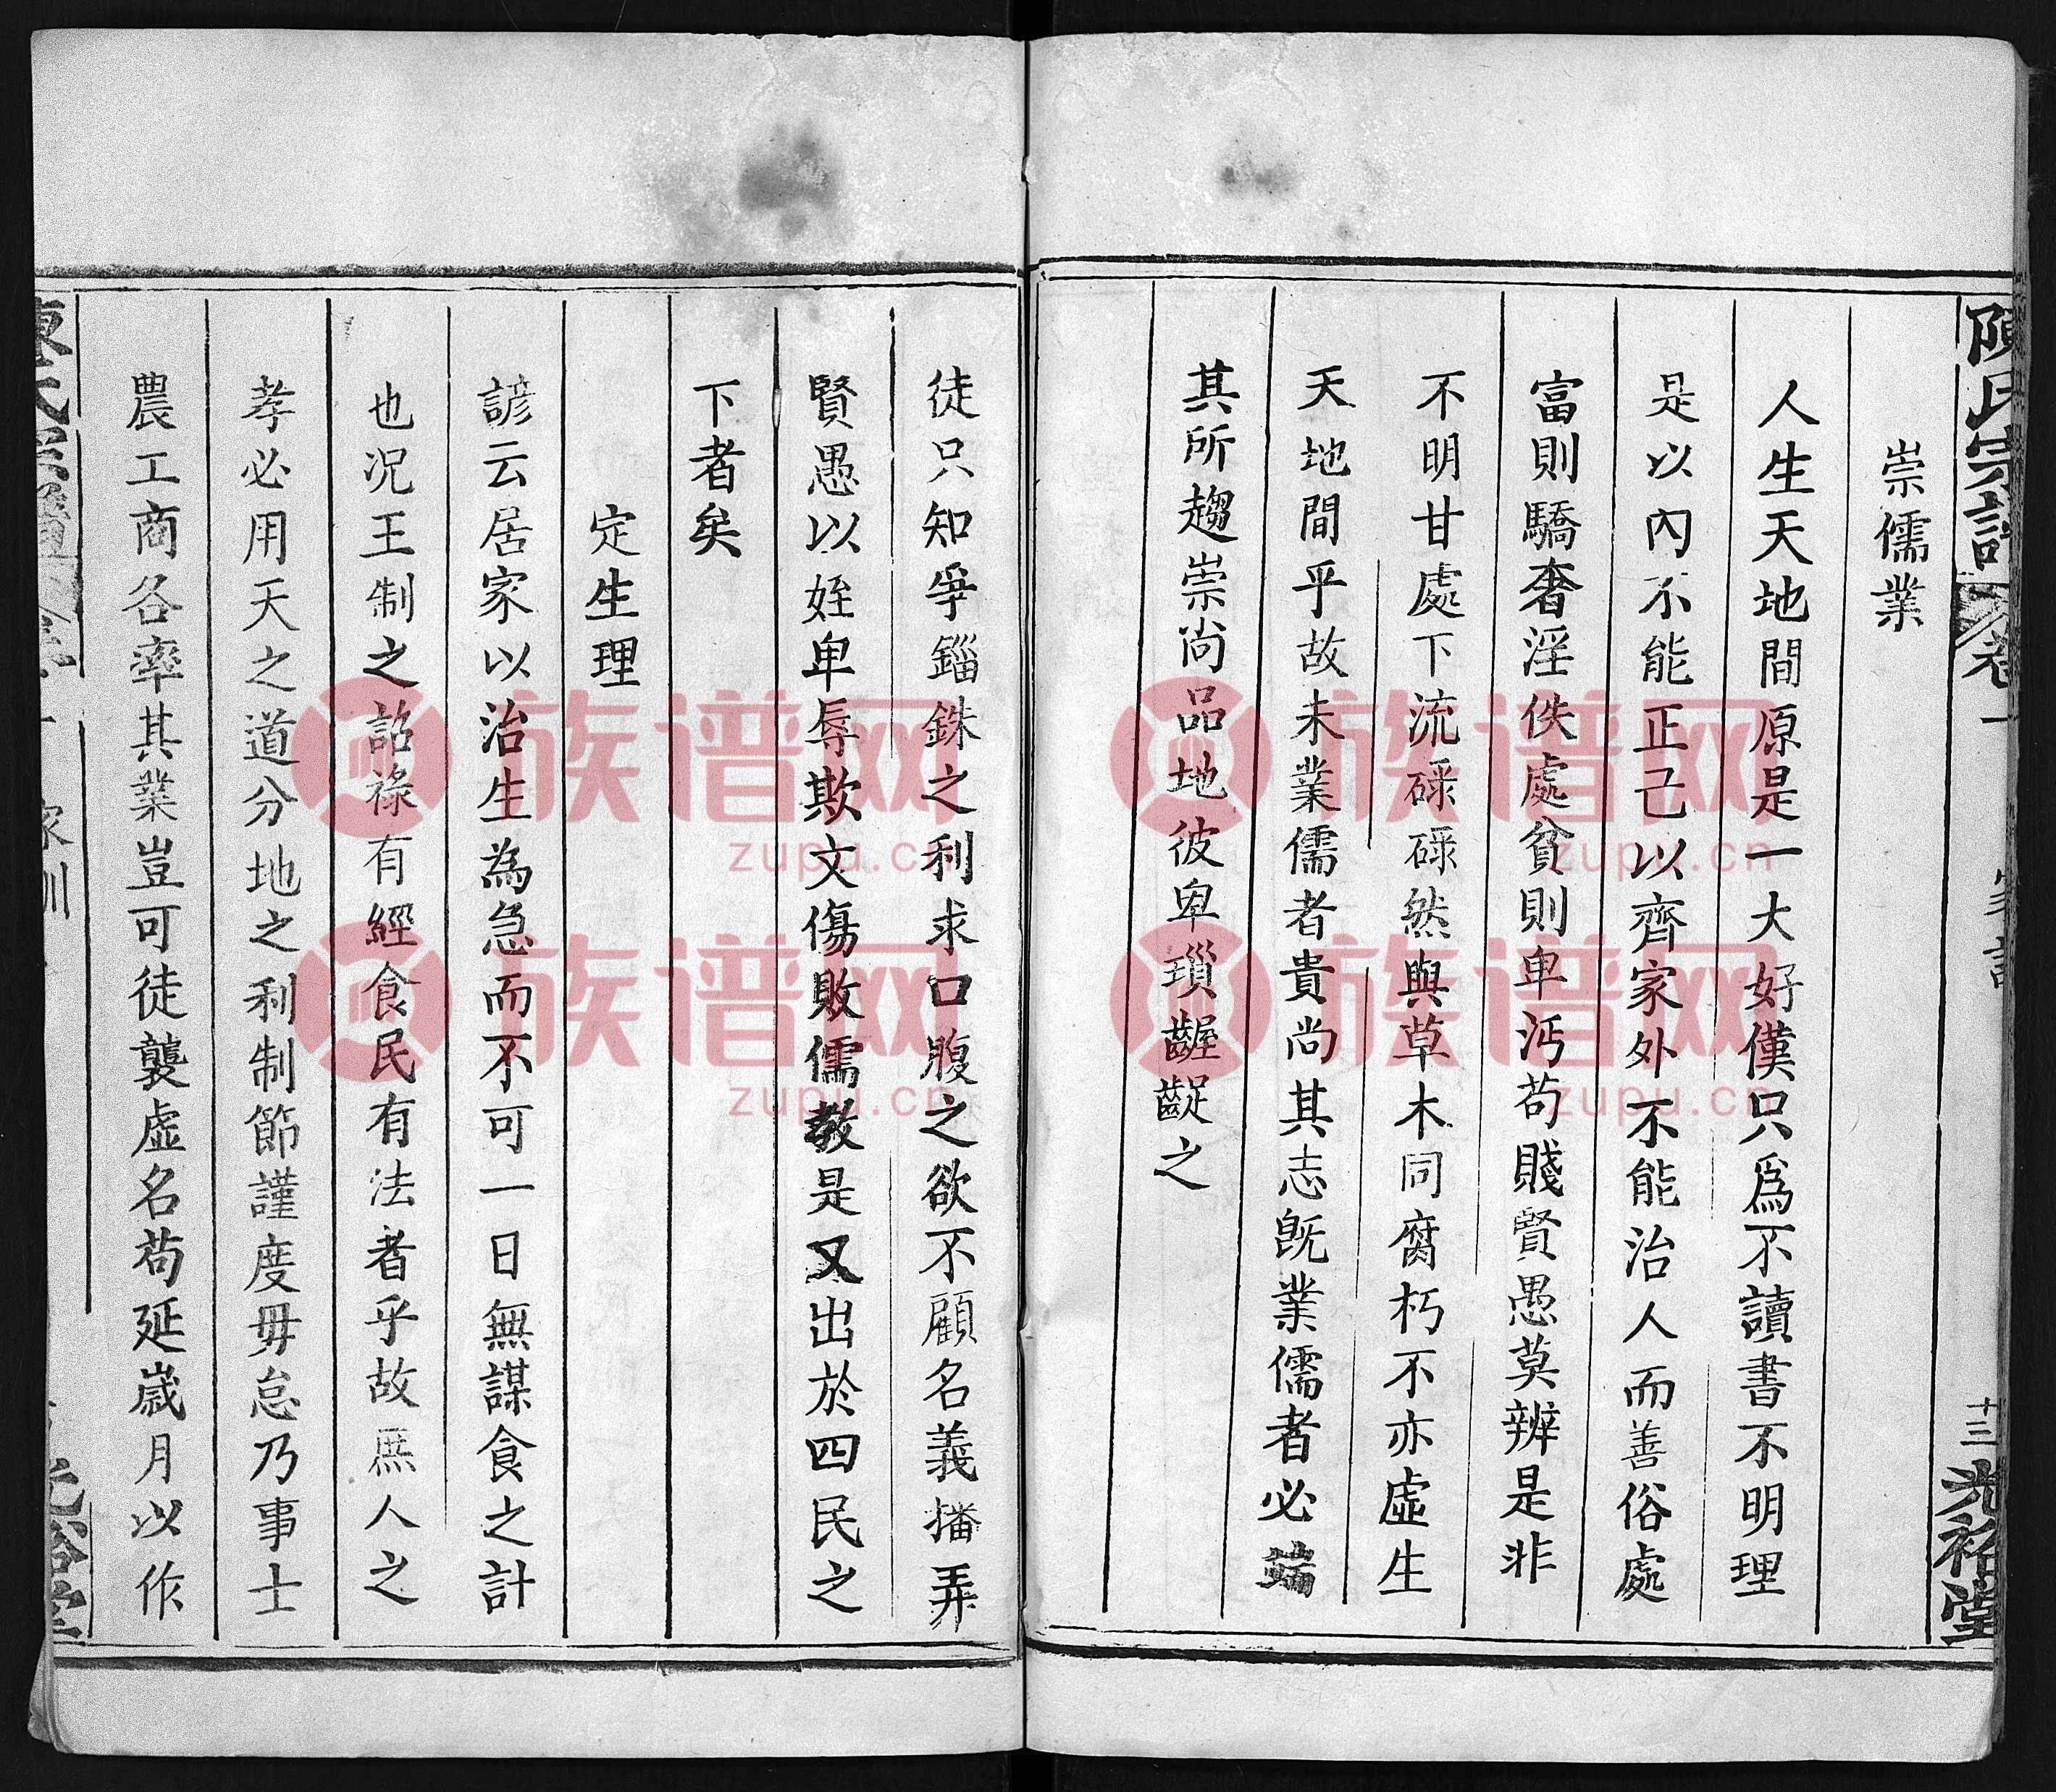 陳氏宗譜
卷一
家訓
十三
光裕堂
崇儒業
人生天地間原是一大好僕只爲不讀書不明理
是以內不能正己以齊家外不能治人而善俗處
富則驕奢淫佚處貧則卑汚苟賤賢愚莫辨是非
不明甘處下流碌碌然與草木同腐朽不亦虛生
天地間乎故未業儒者貴尚其志旣業儒者必端
其所趨崇尚品地彼卑瑣齷齪之
徒只知爭錙銖之利求口腹之欲不顧名義播弄
賢愚以姪卑辱欺文傷敗儒教是又出於四民之
下者矣
定生理
諺云居家以治生為急而不可一日無謀食之計
也况王制之詔祿有經食民有法者乎故庶人之
孝必用天之道分地之利制節謹度毋怠乃事士
農工商各率其業豈可徒襲虛名苟延歲月以作
家訓
光裕堂
族谱网 族谱网
zupu.cn zupu.cn
族谱网 族谱网
zupu.cn zupu.cn